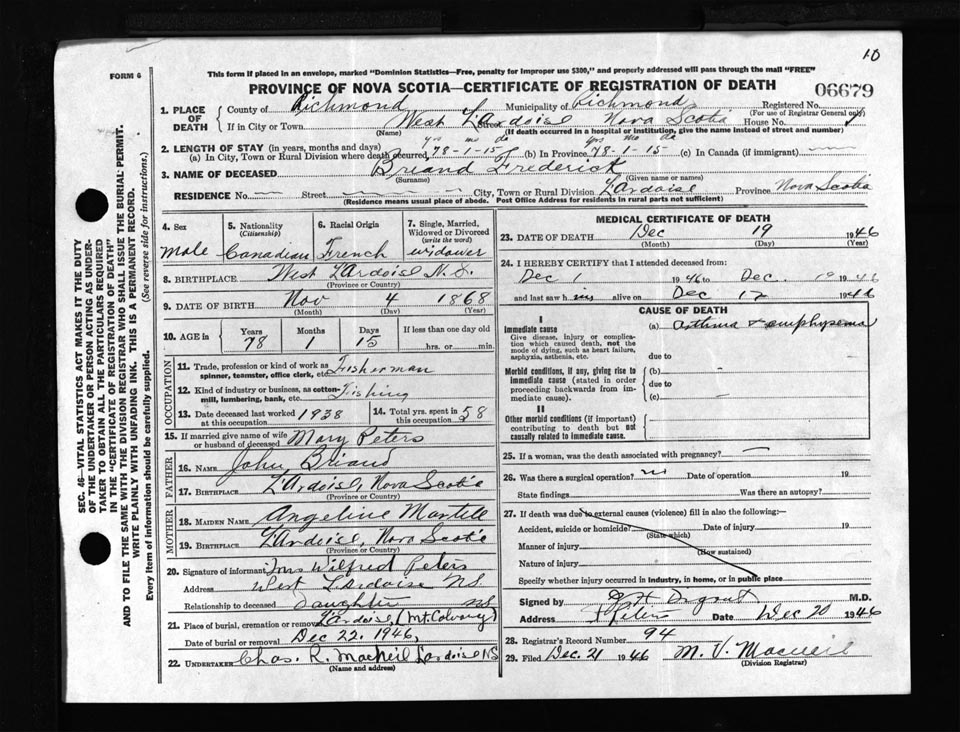 10
FORM 6
This form if placed in an envelope, marked "Dominion Statistics—Free, penalty for improper use $300," and properly addressed will pass through the mail "FREE"
PROVINCE OF NOVA SCOTIA—CERTIFICATE OF REGISTRATION OF DEATH
06679
1. PLACE OF DEATH
County of Richmond Municipality of Richmond Registered No.
(For use of Registrar General only)
If in City or Town West L'Ardoise Street Nova Scotia House No.
(Name) (If death occurred in a hospital or institution, give the name instead of street and number)
2. LENGTH OF STAY (in years, months and days) yrs mo da yrs mo da
(a) In City, Town or Rural Division where death occurred, 78-1-15 (b) In Province 78-1-15 (c) In Canada (if immigrant)
3. NAME OF DECEASED Briand Frederick
(Surname) (Given name or names)
RESIDENCE No. Street City, Town or Rural Division L'Ardoise Province Nova Scotia
(Residence means usual place of abode. Post Office Address for residents in rural parts not sufficient)
4. Sex
Male
5. Nationality
(Citizenship)
Canadian
6. Racial Origin
French
7. Single, Married, Widowed or Divorced
(write the word)
widower
8. BIRTHPLACE West L'Ardoise N.S.
(Province or Country)
9. DATE OF BIRTH Nov 4 1868
(Month) (Day) (Year)
10. AGE in
Years Months Days If less than one day old
78 1 15 hrs. or min.
OCCUPATION
11. Trade, profession or kind of work as spinner, teamster, office clerk, etc. Fisherman
12. Kind of industry or business, as cotton-mill, lumbering, bank, etc. Fishing
13. Date deceased last worked at this occupation 1938
14. Total yrs. spent in this occupation 58
15. If married give name of wife or husband of deceased Mary Peters
FATHER
16. NAME John Briand
17. BIRTHPLACE L'Ardoise, Nova Scotia
(Province or Country)
MOTHER
18. MAIDEN NAME Angeline Martell
19. BIRTHPLACE L'Ardoise, Nova Scotia
(Province or Country)
20. Signature of informant Mrs Wilfred Peters
Address West L'Ardoise NS.
Relationship to deceased daughter NS
21. Place of burial, cremation or removal L'Ardoise, (Mt. Calvary)
Date of burial or removal Dec 22. 1946,
22. UNDERTAKER Chas. R. MacNeil Lardoise NS
(Name and address)
MEDICAL CERTIFICATE OF DEATH
23. DATE OF DEATH Dec 19 1946
(Month) (Day) (Year)
24. I HEREBY CERTIFY that I attended deceased from:
Dec 1 1946 to Dec. 19 1946
and last saw him alive on Dec 1946
CAUSE OF DEATH
I
Immediate cause
Give disease, injury or complication which caused death, not the mode of dying, such as heart failure, asphyxia, asthenia, etc.
(a) Asthma & emphysema
due to
Morbid conditions, if any, giving rise to immediate cause (stated in order proceeding backwards from immediate cause).
(b)
due to
(c)
II
Other morbid conditions (if important) contributing to death but not causally related to immediate cause.
25. If a woman, was the death associated with pregnancy?
26. Was there a surgical operation? no Date of operation 19
State findings Was there an autopsy?
27. If death was due to external causes (violence) fill in also the following:—
Accident, suicide or homicide? Date of injury 19
(State which)
Manner of injury
(How sustained)
Nature of injury
Specify whether injury occurred in industry, in home, or in public place
Signed by M.D.
Date Dec 20 1946
28. Registrar's Record Number 94
29. Filed Dec. 21 1946 M. V. Macneil
(Division Registrar)
SEC. 46—VITAL STATISTICS ACT MAKES IT THE DUTY
OF THE UNDERTAKER OR PERSON ACTING AS UNDER-
TAKER TO OBTAIN ALL THE PARTICULARS REQUIRED
IN THE "CERTIFICATE OF REGISTRATION OF DEATH"
AND TO FILE THE SAME WITH THE DIVISION REGISTRAR WHO SHALL ISSUE THE BURIAL PERMIT.
WRITE PLAINLY WITH UNFADING INK. THIS IS A PERMANENT RECORD.
Every item of information should be carefully supplied. (See reverse side for instructions.)